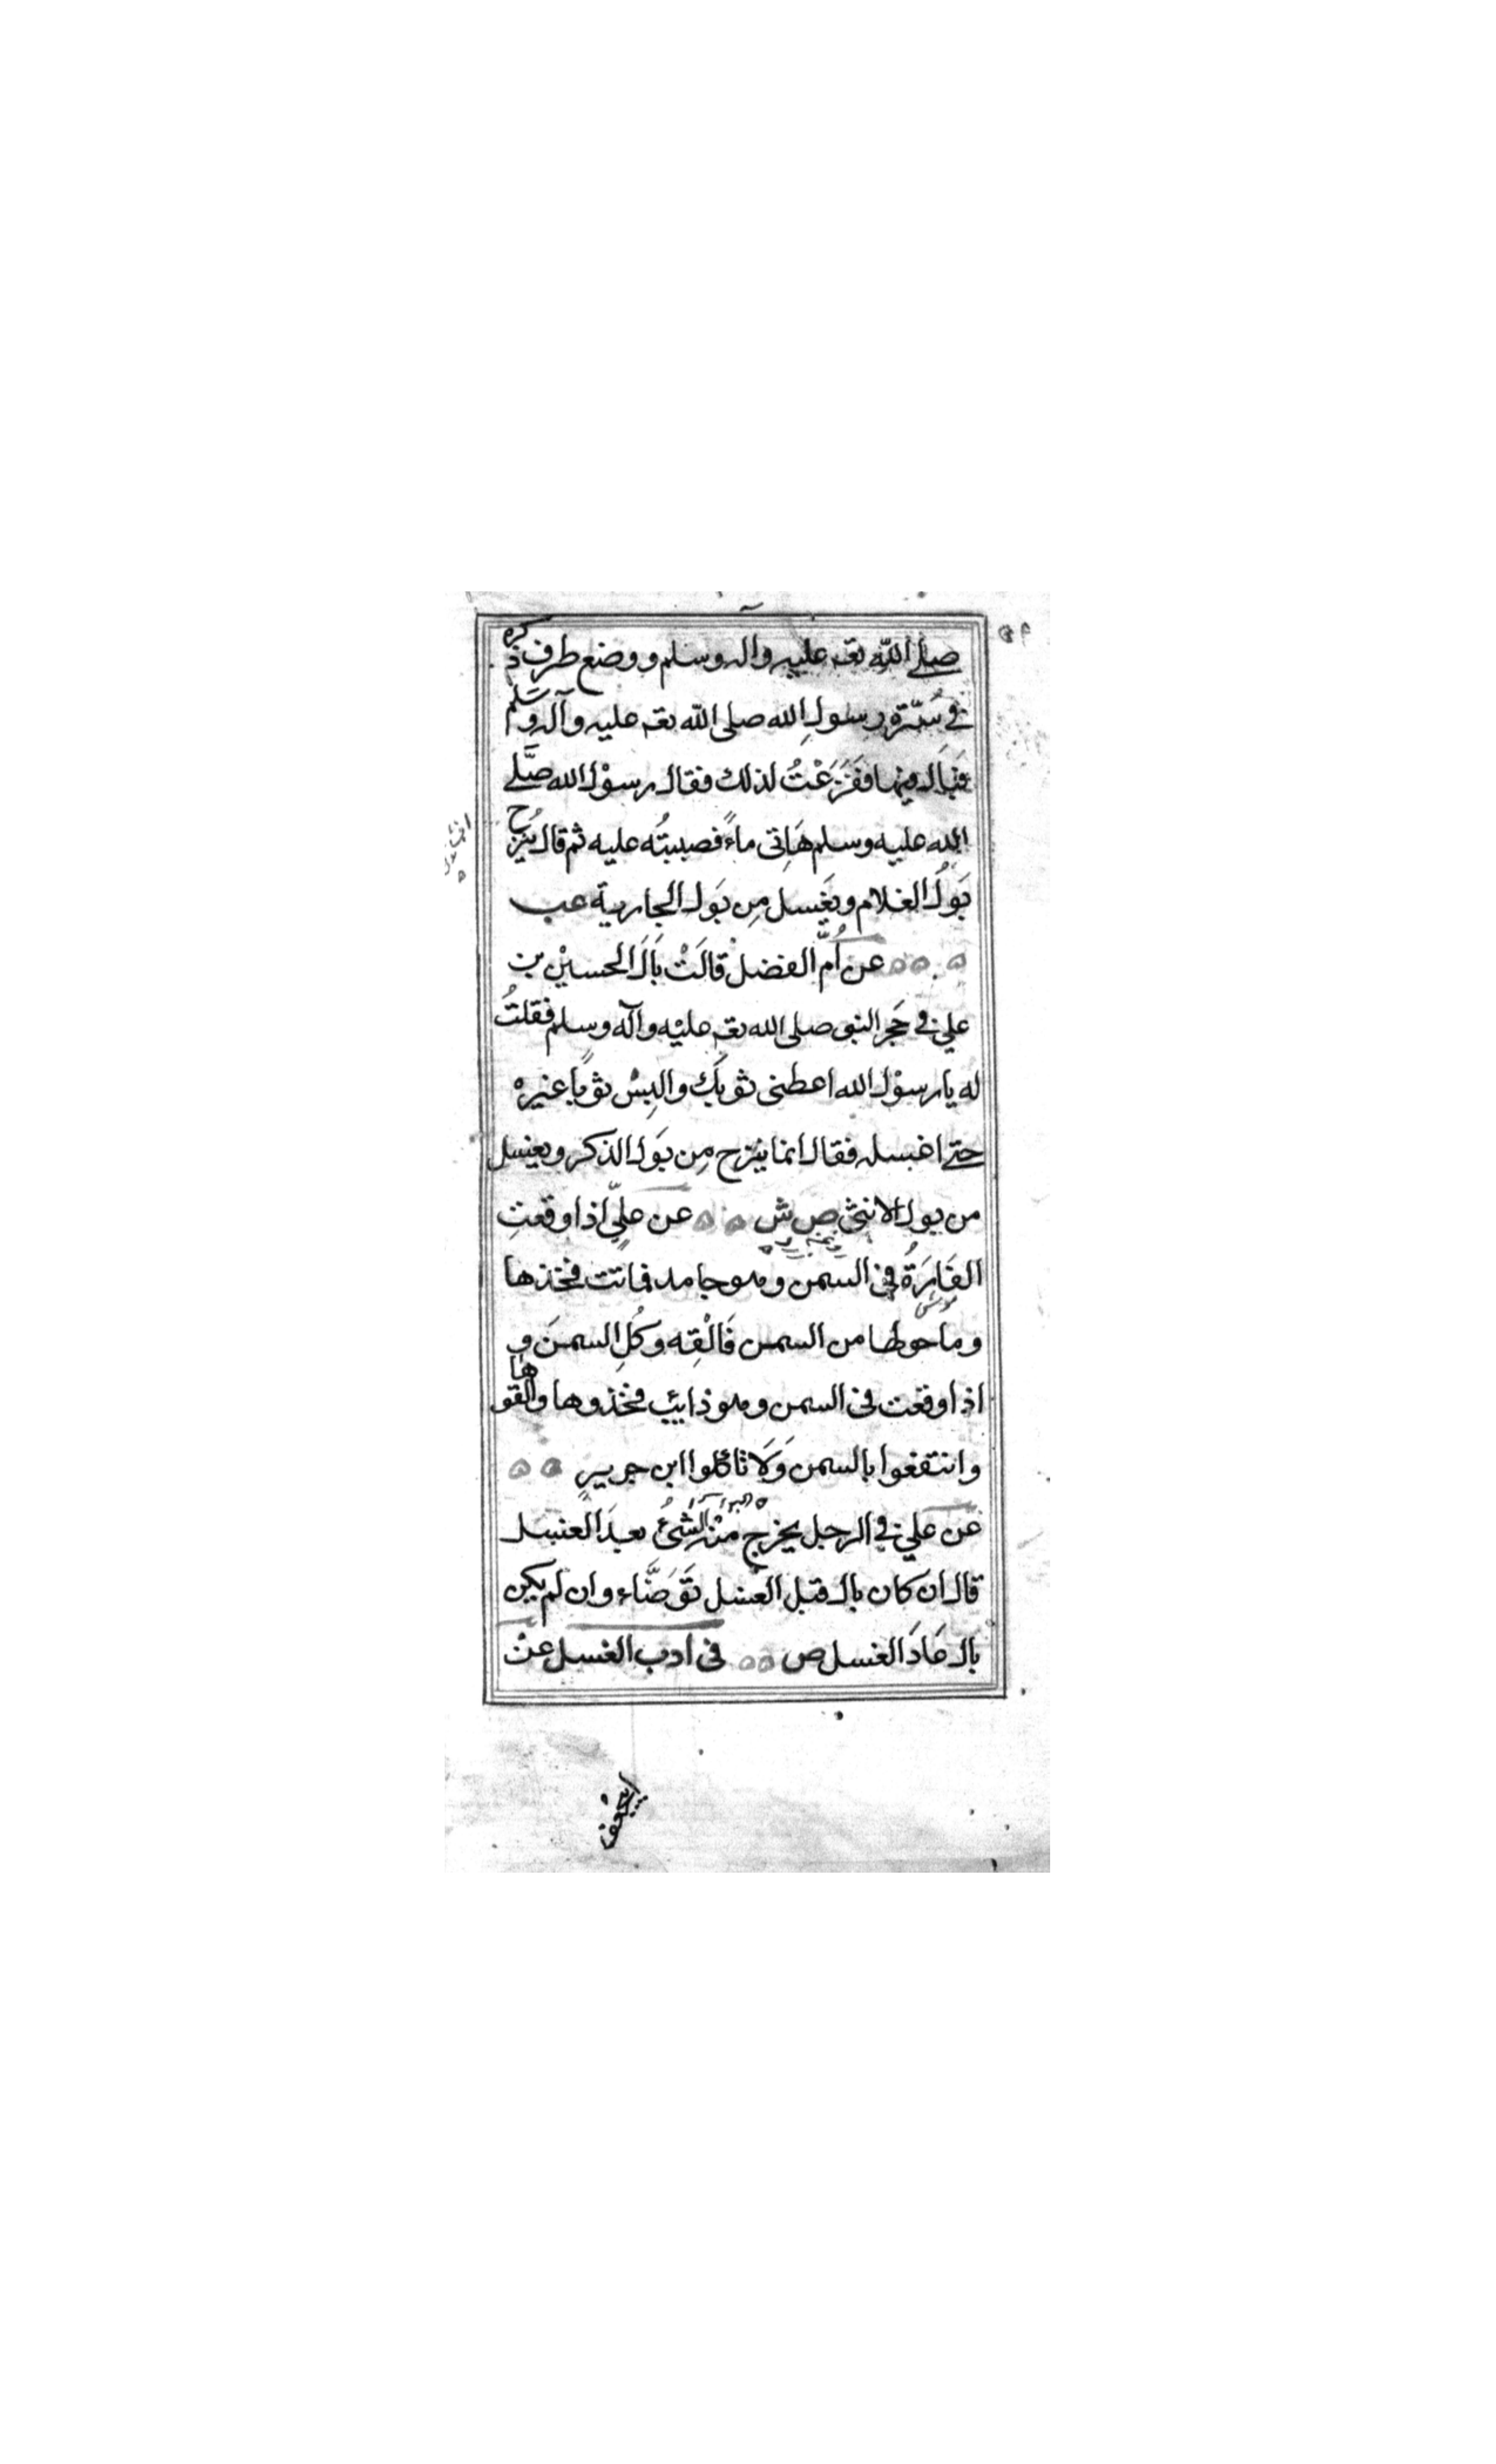 صلے الله تعہ علیہ وآلہ وسلم ووضع طرف ذكره
في سُرّة رسولِ الله صلى الله تعہ علیہ وآلہ وسَلم
فَبَال فيها ففَزَعْتُ لذلك فقال رسوْل الله صَلَّے
الله عليه وسلم هَاتى ماءً فصببتُه عليه ثم قال يُنزح
بَولُ الغلام ويَغسل مِن بَول الجارية عب
عن اُمّ الفضل قالَتْ بَالَ الحسيْن بن
علي في حَجر النبى صلى الله تعہ عليْه وآله وسلم فقلتُ
له يا رسوْل الله اعطنى ثوبَك والبِسْ ثوبًا غيرهْ
حتے اغسلہ فقال انما ينزح مِن بَول الذكر ويغسل
من بول الانثى ص ش عن عليّ اذا وقعتِ
الفَارَةُ فى السمن وهو جامد فماتت فخذها
وما حولها من السمن فَالْقِه وكُلِ السمنَ و
اذا وقعت فى السمن وهو ذائب فخذوها والقوها
وانتفعوا بالسمن وَلَا تاكلوا ابن جرير
عن علي في الرجل يخرج منْه الشئُ بعدَ الغسل
قال ان كان بال قبل الغسل تَوَضَّاء وان لم يكن
بال عَادَ الغسل ص فى ادب الغسل عنْ